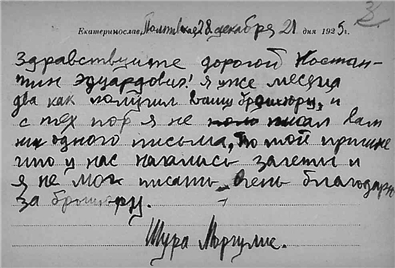 Екатеринослав, Полтавская 28 декабря 21 дня 1925 г.
Здравствуйте дорогой Костан-
тин Эдуардович! Я уже месяца
два как получил Вашу брошюру, и
с тех пор я не писал Вам
ни одного письма, по той причине
что у нас начались зачеты и
я не мог писать. Очень благодарю
за брошюру.
Шура Маргулис.